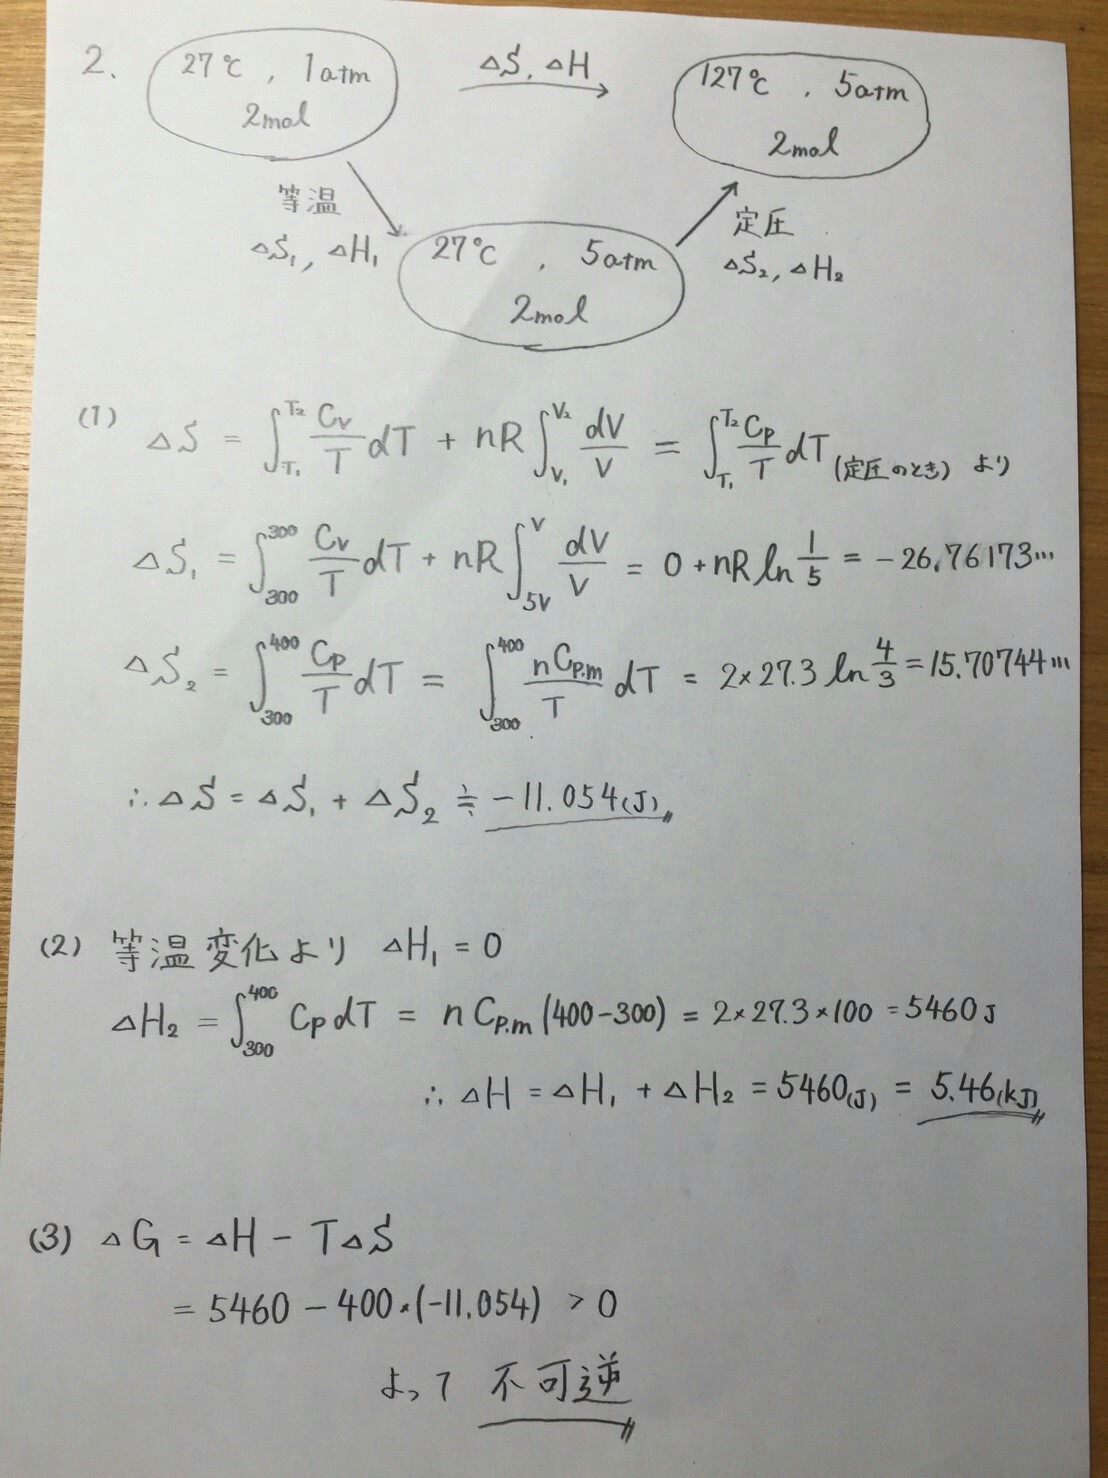 2. 27℃, 1atm 2mol
ΔS, ΔH
127℃, 5atm 2mol
等温 ΔS₁, ΔH₁
27℃, 5atm 2mol
定圧 ΔS₂, ΔH₂
(1) ΔS = ∫_{T₁}^{T₂} Cv/T dT + nR ∫_{V₁}^{V₂} dV/V = ∫_{T₁}^{T₂} Cp/T dT (定圧のとき) より
ΔS₁ = ∫_{300}^{300} Cv/T dT + nR ∫_{5V}^{V} dV/V = 0 + nR ln 1/5 = -26.76173…
ΔS₂ = ∫_{300}^{400} Cp/T dT = ∫_{300}^{400} nCp.m/T dT = 2×27.3 ln 4/3 = 15.70744…
∴ ΔS = ΔS₁ + ΔS₂ ≒ -11.054(J)
(2) 等温変化より ΔH₁ = 0
ΔH₂ = ∫_{300}^{400} Cp dT = nCp.m (400-300) = 2×27.3×100 = 5460J
∴ ΔH = ΔH₁ + ΔH₂ = 5460(J) = 5.46(kJ)
(3) ΔG = ΔH - TΔS
= 5460 - 400・(-11.054) > 0
よって 不可逆